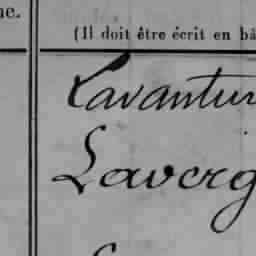 ne.
(Il doit être écrit en bâ
Lavantur
Laverg